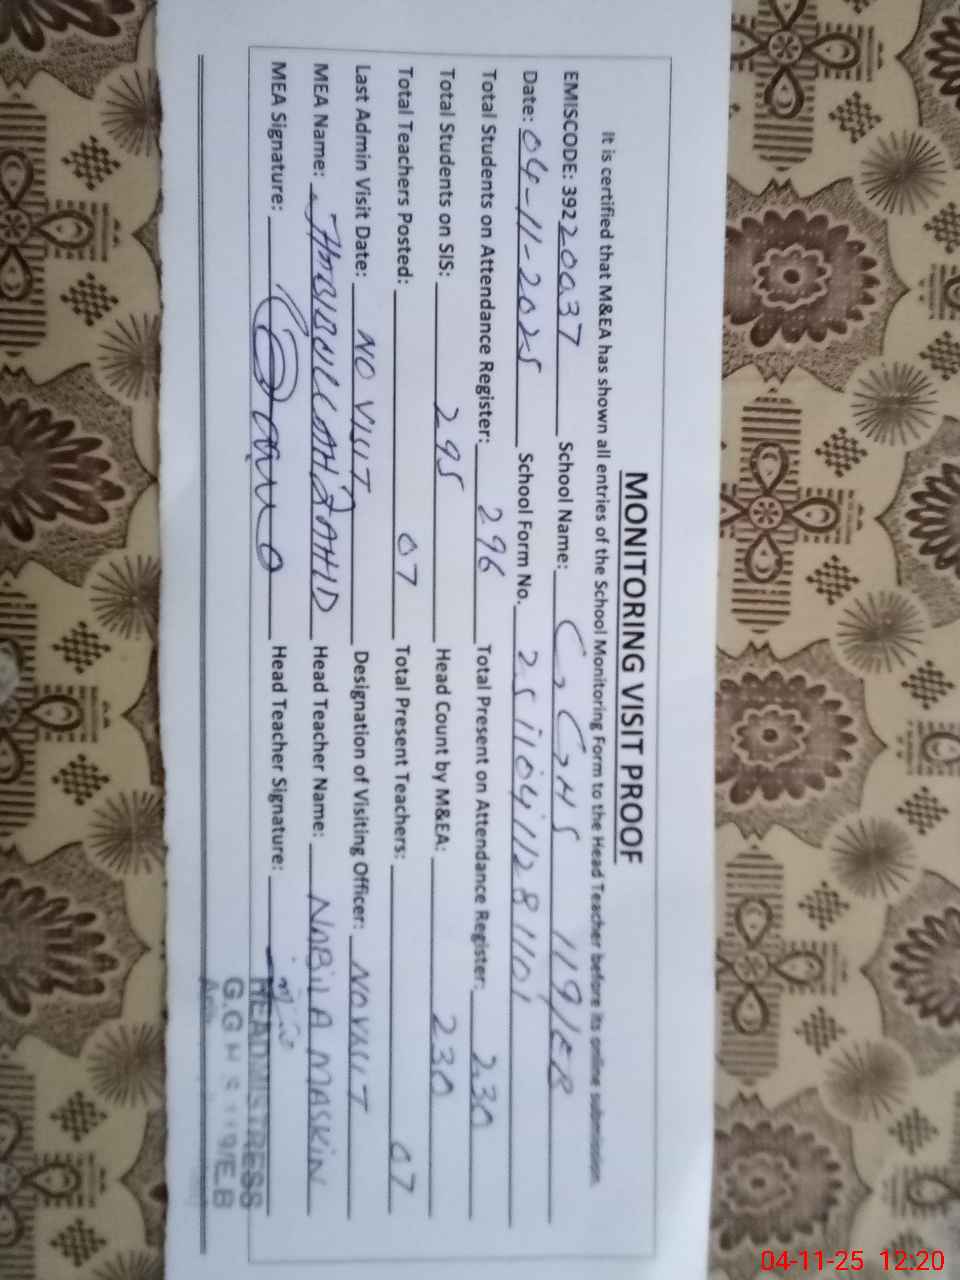 MONITORING VISIT PROOF
It is certified that M&EA has shown all entries of the School Monitoring Form to the Head Teacher before its online submission.
EMISCODE: 39220037 School Name: GGHS 119/EB
Date: 04-11-2025 School Form No. 25110411281101
Total Students on Attendance Register: 296 Total Present on Attendance Register: 230
Total Students on SIS: 295 Head Count by M&EA: 230
Total Teachers Posted: 07 Total Present Teachers: 07
Last Admin Visit Date: NO VISIT Designation of Visiting Officer: NO VISIT
MEA Name: HABIBULLAH ZAHID Head Teacher Name: NABILA MASKIN
MEA Signature: Head Teacher Signature:
HEADMISTRESS
G.G H S 119/E.B
04-11-25 12:20